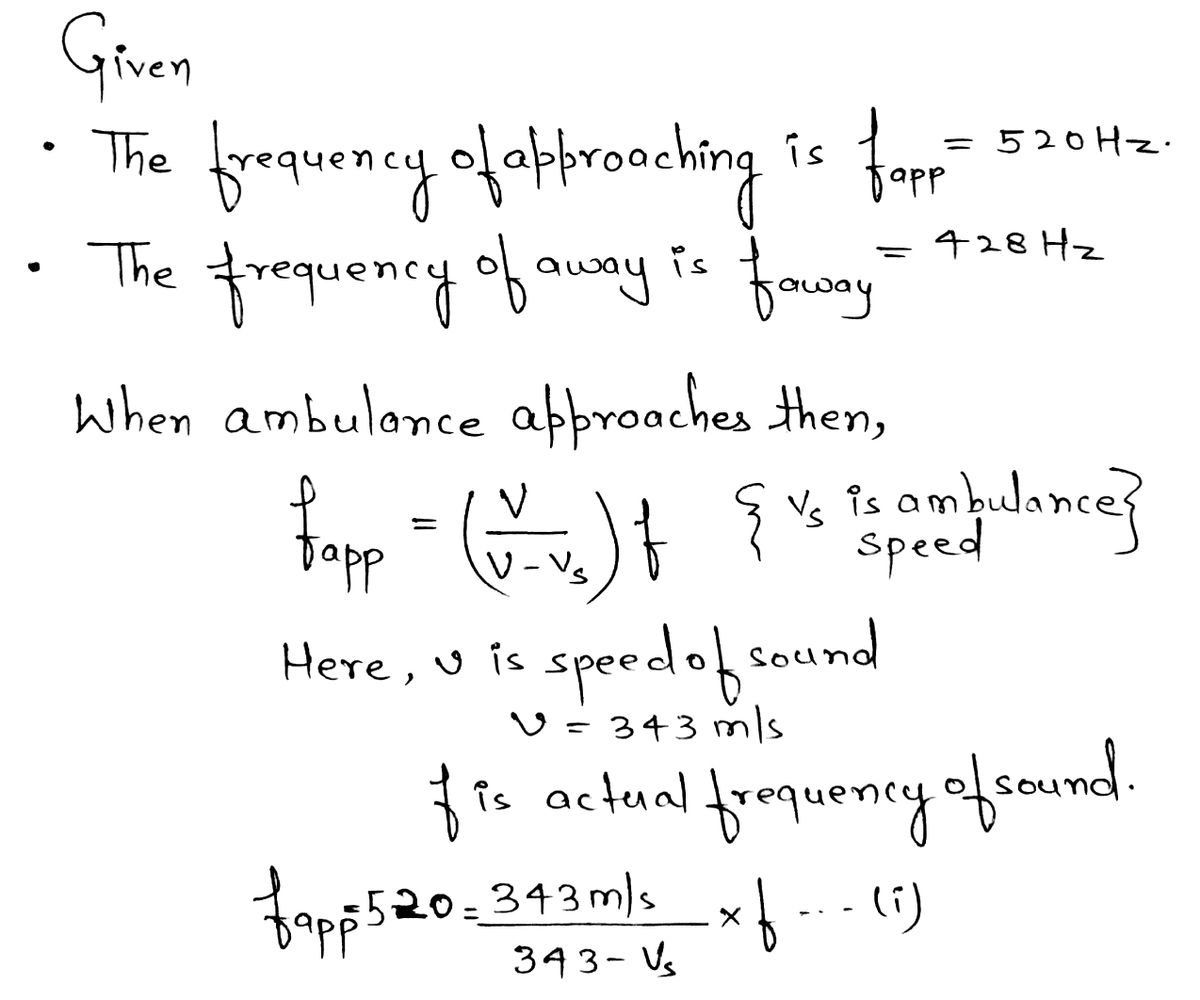 Given
• The frequency of approaching is f_app = 520Hz.
• The frequency of away is f_away = 428 Hz
When ambulance approaches then,
f_app = (V / (V - Vs)) f { Vs is ambulance speed }
Here, v is speed of sound
v = 343 m/s
f is actual frequency of sound.
f_app = 520 = (343 m/s / (343 - Vs)) × f ... (i)